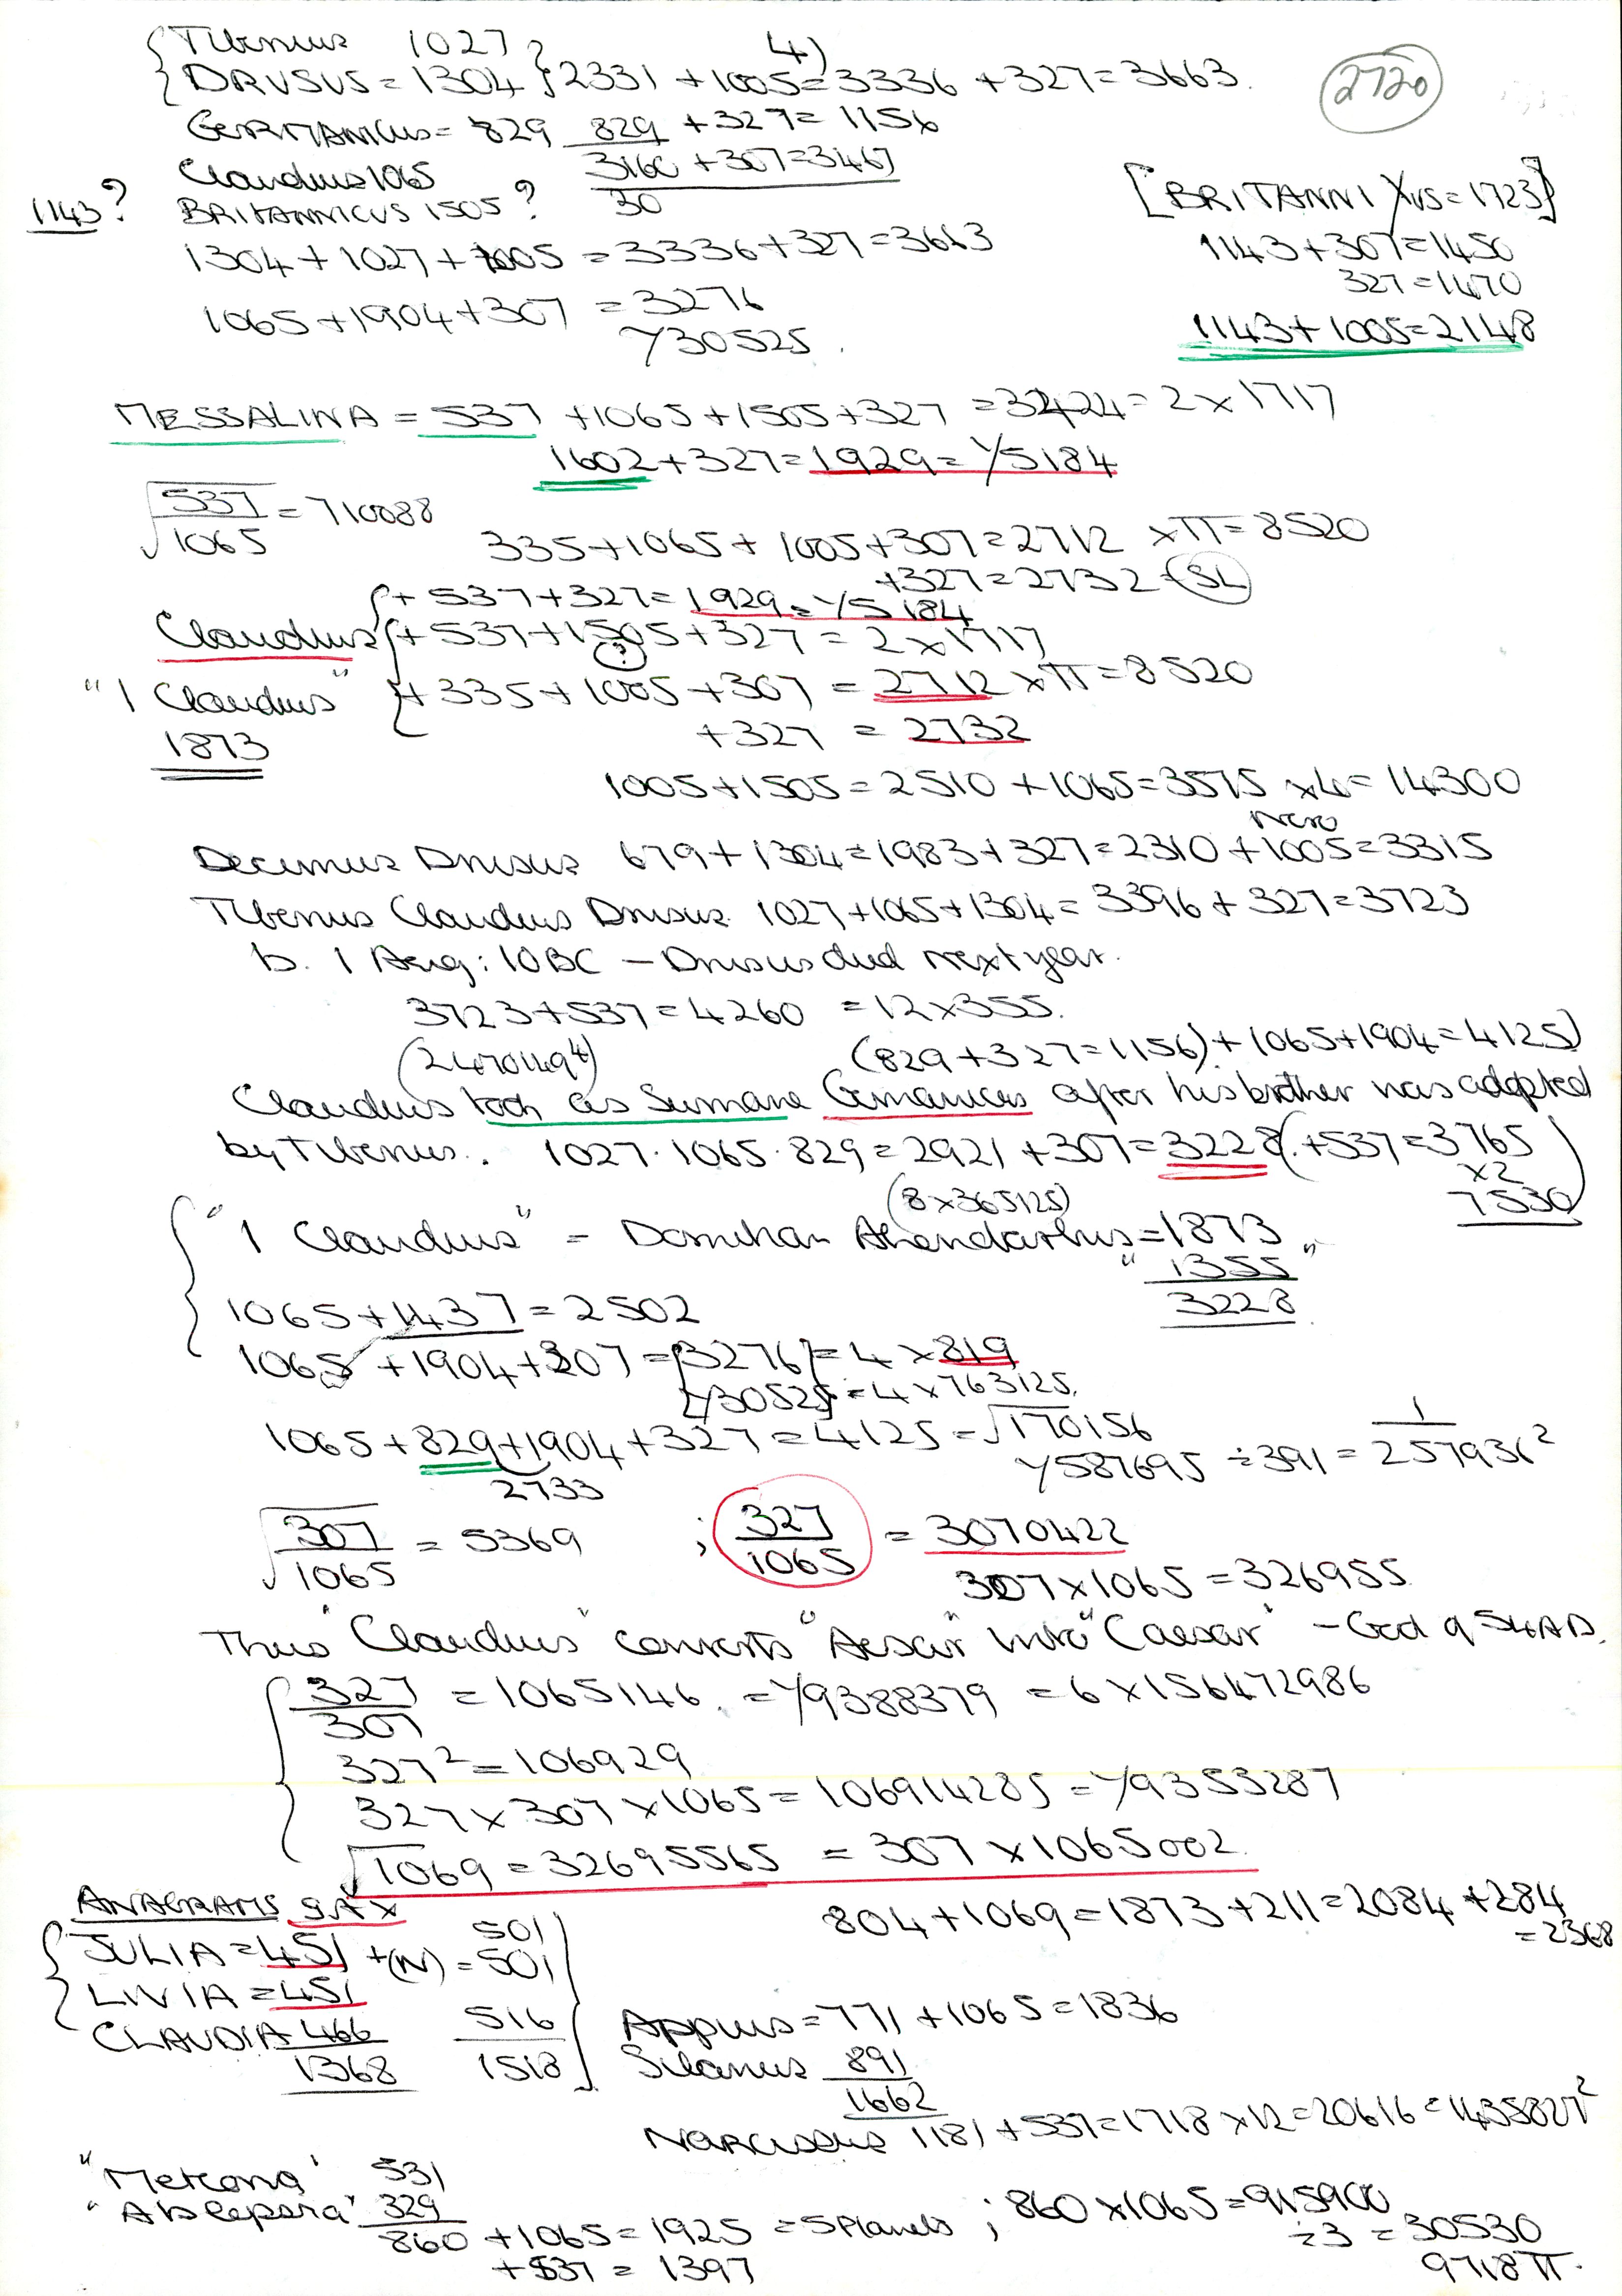 {Tiberius 1027} 4)
{DRUSUS = 1304} 2331 + 1005 = 3336 + 327 = 3663.
2720
GERMANICUS = 829 829 + 327 = 1156
Claudius 1065 3160 + 307 = 3467
1143? BRITANNICUS 1505? 30
[BRITANNI XUS = 1723]
1304 + 1027 + 1005 = 3336 + 327 = 3663
1143 + 307 = 1450
327 = 1470
1065 + 1904 + 307 = 3276
1143 + 1005 = 2148
Y30525.
MESSALINA = 537 + 1065 + 1505 + 327 = 3424 = 2 x 1717
1602 + 327 = 1929 = Y5184
√537/1065 = 710088
335 + 1065 + 1005 + 307 = 2712 x π = 8520
+ 327 = 2732 = SL
{+ 537 + 327 = 1929 = Y5184
Claudius {+ 537 + 1505 + 327 = 2 x 1717
(?)
"1 Claudius" {+ 335 + 1005 + 307 = 2712 x π = 8520
+ 327 = 2732
1873
1005 + 1505 = 2510 + 1065 = 3575 x 4 = 14300
Nero
Decimus Drusus 679 + 1304 = 1983 + 327 = 2310 + 1005 = 3315
Tiberius Claudius Drusus. 1027 + 1065 + 1304 = 3396 + 327 = 3723
b. 1 Aug: 10BC – Drusus died next year.
3723 + 537 = 4260 = 12 x 355.
(24701494) (829 + 327 = 1156) + 1065 + 1904 = 4125)
Claudius took as surname Germanicus after his brother was adopted
by Tiberius. 1027 . 1065 . 829 = 2921 + 307 = 3228 (+ 537 = 3765
x 2
7530)
(8 x 365125)
"1 Claudius" = Domitian = 1873
" 1355 "
3228
1065 + 1437 = 2502
1065 + 1904 + 307 = {3276} = 4 x 819
{Y30525} = 4 x 763125.
1065 + 829 + 1904 + 327 = 4125 = √170156
2733
Y587695 ÷ 391 = 1/257936²
√307/1065 = 5369 ; 327/1065 = 3070422
307 x 1065 = 326955
Thus "Claudius" converts "Aesar" into "Caesar" – God of 54 AD.
327/307 = 1065146. = Y9388379 = 6 x 156472986
327² = 106929
327 x 307 x 1065 = 106914285 = Y9353287
√1069 = 32695565 = 307 x 1065002.
ANAGRAMS
804 + 1069 = 1873 + 211 = 2084 + 284
= 2368
501
JULIA = 451 + (N) = 501
LIVIA = 451
CLAUDIA 466 516
1368 1518
Appius = 771 + 1065 = 1836
Silanus 891
1662
Narcissus 1181 + 537 = 1718 x 12 = 20616 = 1435827²
"Metcona" 531
"Ablepsia" 329
860 + 1065 = 1925 = 5 Planets ; 860 x 1065 = 915900
+ 537 = 1397
÷ 3 = 30530
9718π.